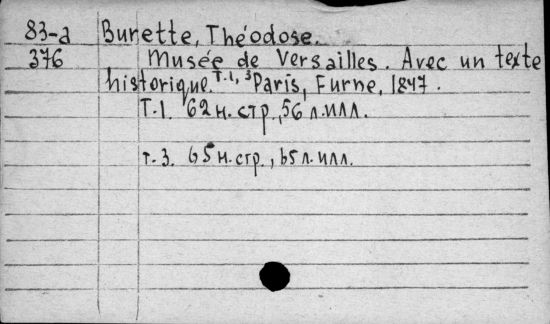 83-a Burette, Théodose.
376 Musée de Versailles. Avec un texte
historique. T.1, 3 Paris, Furne, 1847.
T.1. 62 н. стр., 56 л. илл.
т. 3. 65 н. стр., 65 л. илл.